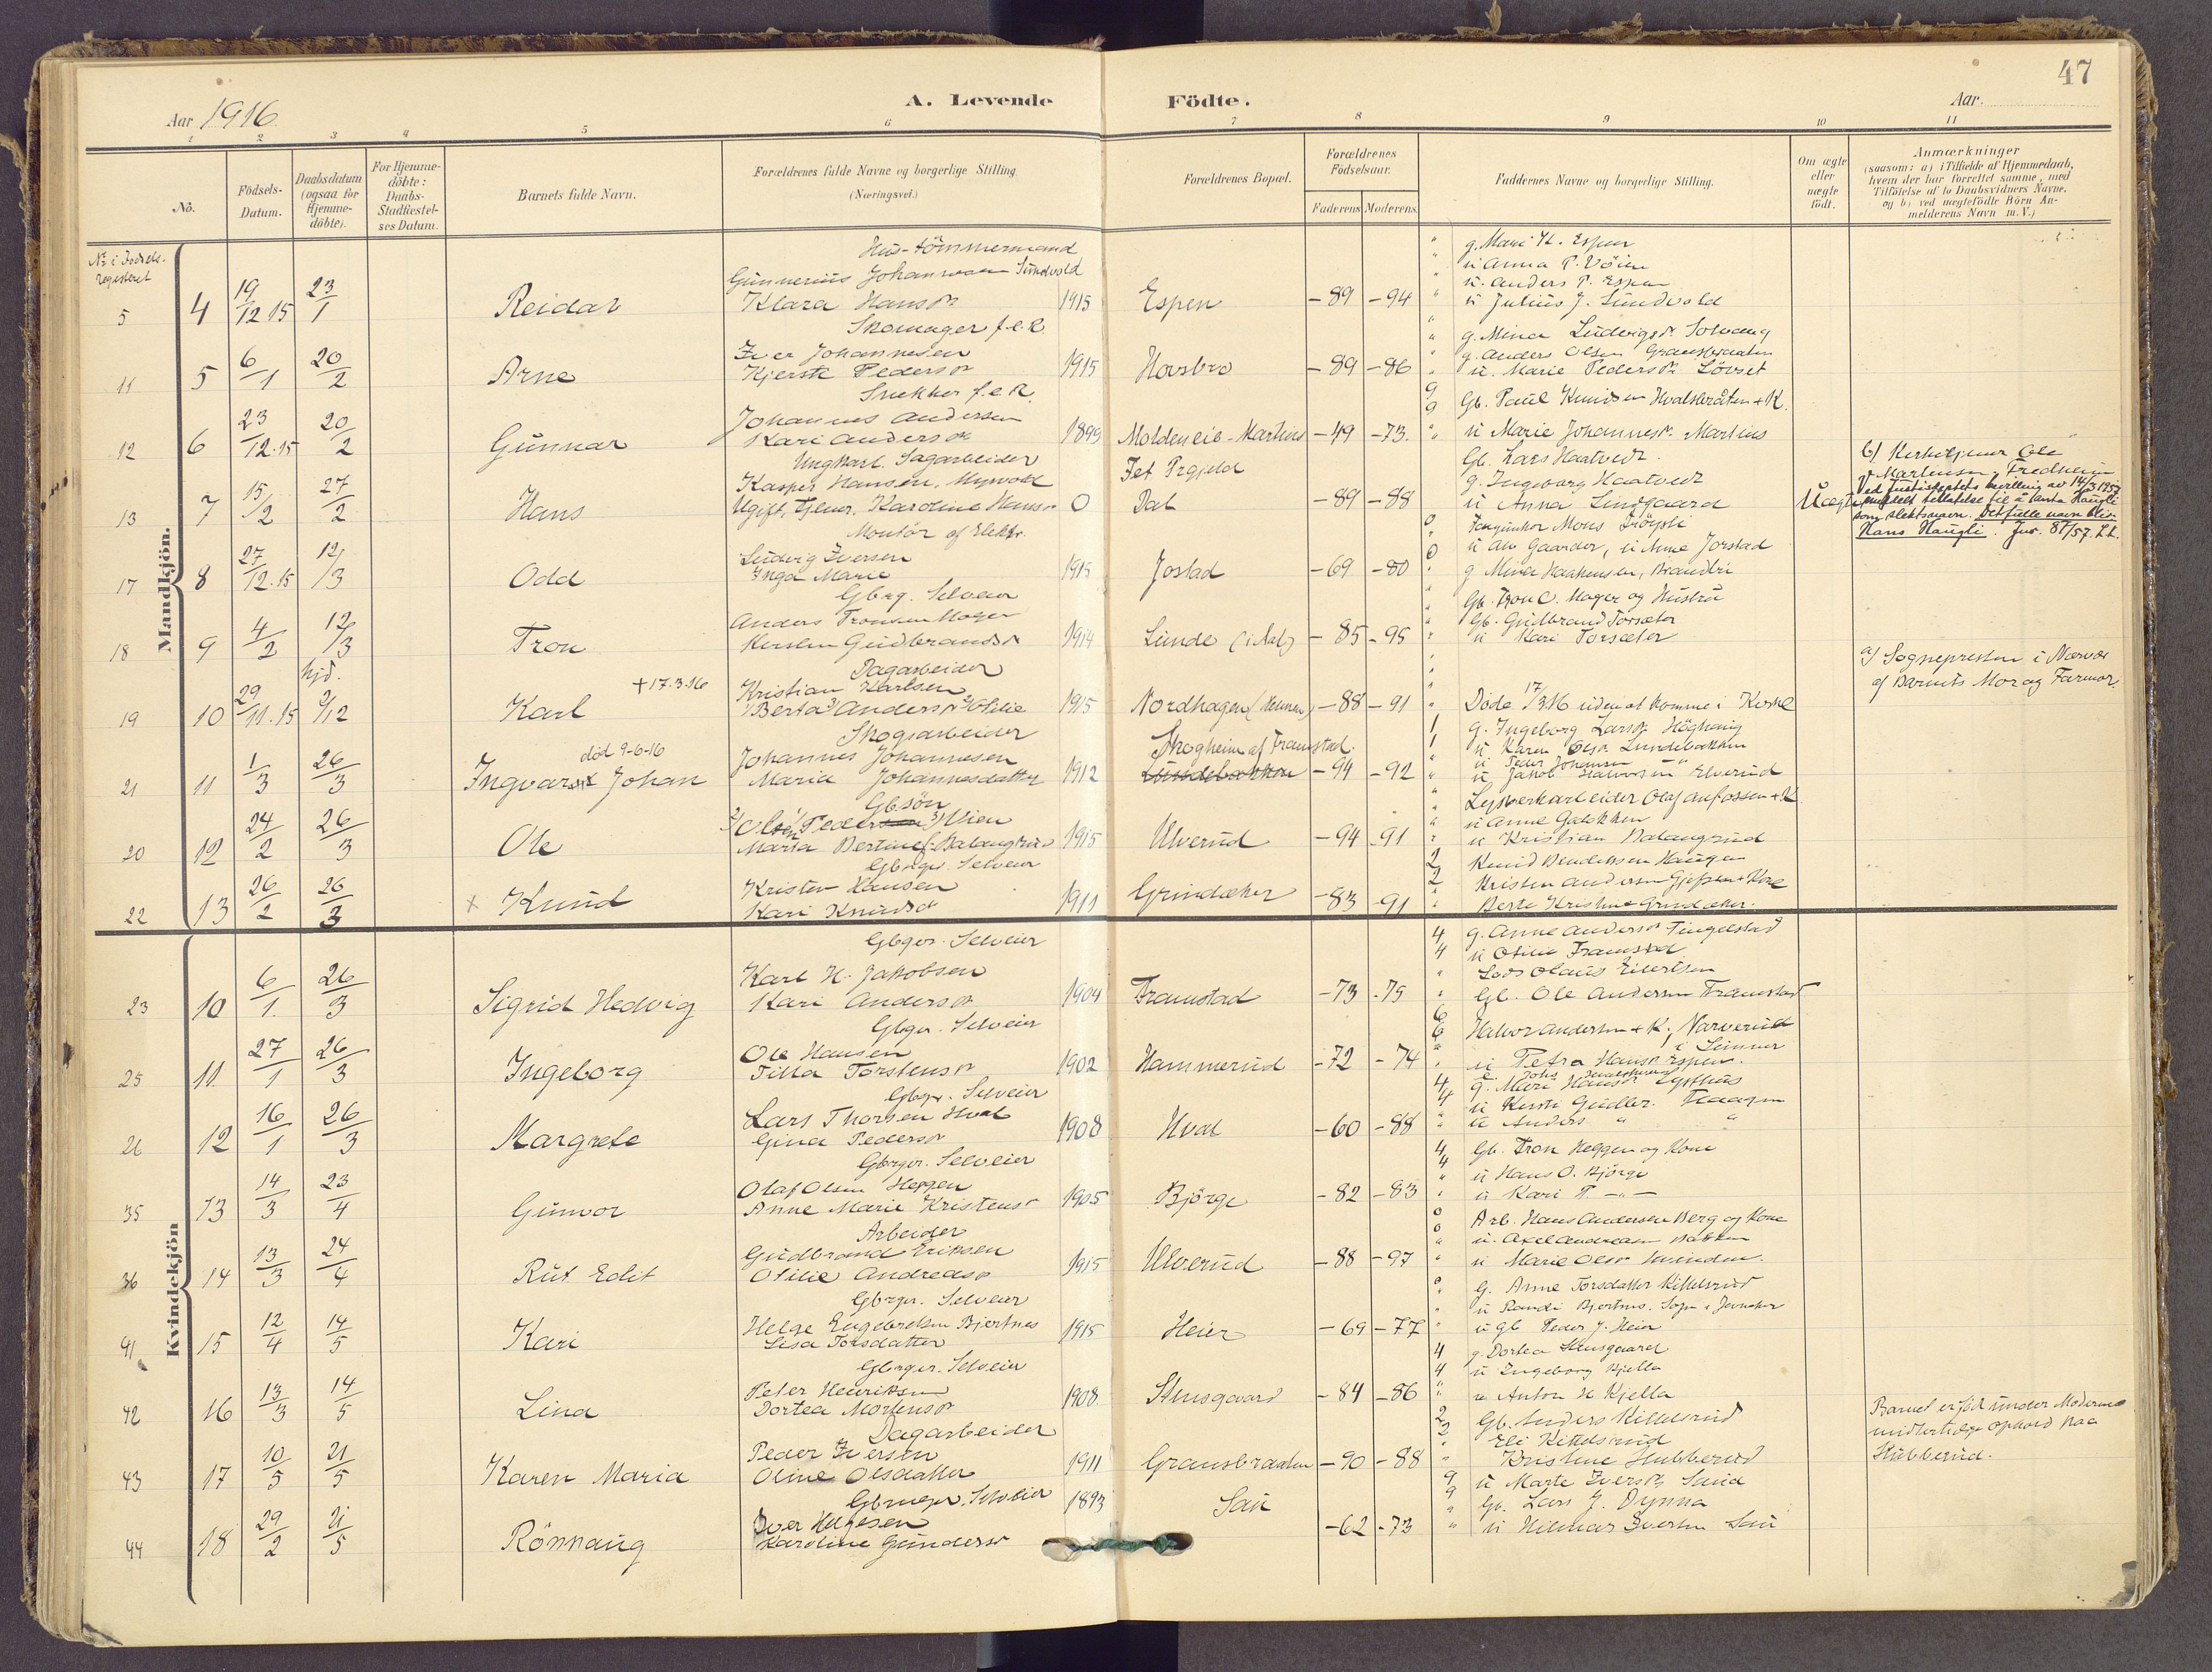 47
A. Levende Födte.
Aar 1916
Aar.
1 2 3 4 5 6 7 8 9 10 11
No.
Födsels-Datum.
Daabsdatum (ogsaa for Hjemme-döbte).
For Hjemme-döbte: Daabs-Stadfæstel-ses Datum.
Barnets fulde Navn.
Forældrenes fulde Navne og borgerlige Stilling. (Næringsvei.)
Forældrenes Bopæl.
Forældrenes Födselsaar.
Faderens Moderens
Faddernes Navne og borgerlige Stilling.
Om ægte eller uægte födt.
Anmærkninger
(saasom: a) i Tilfælde af Hjemmedaab, hvem der har forrettet samme, med Tilföielse af to Daabsvidners Navne, og b) ved uægtefödte Börn An-melderens Navn m. V.)
No i Födsels-registeret
Mandkjön.
Hus-tömmermand
Gunnerius Johannesen Sundvold
5 4 19/12 15 23/1 Reidar Klara Hansdr 1915 Espen -89 -94
g. Mari H. Espen
u Anna P. Vöien
u. Anders P. Espen
u Julius J. Sundvold
Skomager f.e.R.
Iver Johannesen
11 5 6/1 20/2 Arne Kjersti Pedersdr 1915 Hovsbro -89 -86
g. Mina Ludvigsdr. Solvang
g. Anders Olsen Gransbraaten
u. Marie Pedersdr. Lövset
Snekker f.e.R.
Johannes Andersen
12 6 23/12.15 20/2 Gunnar Kari Andersdr 1899 Moldeneie - Markus -49 -73.
Gb. Paul Knudsen Hvalsbråten + K.
u Marie Johannesdr. Markus
Ungkarl. Sagarbeider
Kasper Hansen. Myrvold
13 7 15/2 27/2 Hans Ugift, Tjener. Karoline Hansdr 0 Jet Prgjeld Dal -89 -88 Uægte
Gb. Lars Haatvedt.
g. Ingeborg Haatvedt
u Anna Lundgaard
b) Kirketjener Ole Martinsen, Fredheim
Ved Justisdeptets bevilling av 14/3 1957
meddelt tillatelse til å anta Haugli
som slektsnavn. Det fulle navn blir:
Hans Haugli. Jnr. 87/57. Lt.
Montör af Elektr.
Ludvig Iversen
17 8 27/12.15 12/3 Odd Inga Marie 1915 Jostad -69 -80
u Alv Gaarder, u Anne Jorstad
g Mina Haakensen, Brandbu
Gbrg. Selveier
Anders Tronsen Moger
18 9 4/2 12/3 Tron Kersten Gudbrandsdr 1914 Lunde (i Aal) -85 -95
Gb. Tron C. Moger og Hustru
Gb. Gudbrand Torsæter
u Kari Torsæter
Dagarbeider
Kristian Karlsen
19 10 29/11.15 hjd. 9/12 Karl + 17.3.16 Berta Andersdr Otilie 1915 Nordhagen -88 -91
Döde 17/3 16 uden at komme i Kirke
a) Sognepresten i Nærvær
af Barnets Mor og Farmor.
Skogsarbeider
Johannes Johannesen
21 11 1/3 26/3 Ingvar Johan död 9-6-16 Maria Johannesdatter 1912 Skogheim af Framstad. -94 -92
g. Ingeborg Larsdr. Höghaug
u Karen Olsdr Lundebakken
u Peder Johansen
u Jakob Halvorsen Elverud
Gbsön
20 12 24/2 26/3 Ole Olsen Pedersen Vien 1915 Ulverud -94 -91
Maria Bertine Balangrud
u Anne Galokken
u Kristian Balangrud
Gbrgr. Selveier
Kristen Hansen
22 13 26/2 26/3 Knud Kari Knudsd 1911 Grindaker -83 -91
Knud Bendiksen Haugen
Berte Kristine Grindaker.
Kvindekjön
Gbgr. Selveier
Karl H. Jakobsen
23 10 6/1 26/3 Sigrid Hedvig Kari Andersdr 1904 Framstad -73 -75
g. Anne Andersdr Tingelstad
u Otilie Framstad
Lods Olaus Eilertsen
Gb. Ole Andersen Framstad
Gbgr. Selveier
Ole Hansen
25 11 27/1 26/3 Ingeborg Tilla Torstensdr 1902 Hammerud -72 -74
Halvor Andersen + K. Narverud i Lunner
u Petra Hansdr Espen.
Gbgr. Selveier
Lars Thorsen Hval
26 12 16/1 26/3 Margrete Gina Pedersdr 1908 Hval -60 -88
g. Mari Hansdr Lysthus
u Anders " "
Gbrgr. Selveier
Olaf Olsen Heggen
35 13 14/3 23/4 Gunvor Anne Marie Kristensdr 1905 Björge -82 -83
Gb. Tron Heggen og Kone
u Hans O. Björge
u Kari P. -"-
Arbeider
Gudbrand Eriksen
36 14 13/3 24/4 Rut Edit Otilie Andreasdr 1915 Ulverud -88 -97
Arb. Hans Andersen Berg og Kone
u. Axel Andreasen Bakken
u Marie Olsdr
Gbrgr. Selveier
Helge Engebretsen Bjertnes
41 15 12/4 14/5 Kari Lisa Torsdatter 1915 Heier -69 -77
g. Anne Torsdatter Kittelsrud
u Randi Bjertnes. Sogn i Jevnaker
u gb Peder J. Heier
Gbrgr. Selveier
Peter Henriksen
42 16 13/3 14/5 Lina Dortea Mortensdr 1908 Stensgaard -84 -86
g. Dortea Stensgaard
u Ingeborg Kjella
u Anton H Kjella
Dagarbeider
Peder Iversen
43 17 10/5 21/5 Karen Maria Oline Olsdatter 1911 Gransbraaten -90 -88
Gb. Anders Kittelsrud
Eli Kittelsrud
Kristine Hubberud
Barnet er född under Moderens
midlertidige ophold paa
Hubberud.
Gbruger. Selveier
Iver Helgesen
44 18 29/2 21/5 Rönnaug Karoline Gundersdr 1893 Sau -62 -73
u Marte Iversdr. Saud
Gb. Lars J. Dynna
u Hilmar Iversen Sau